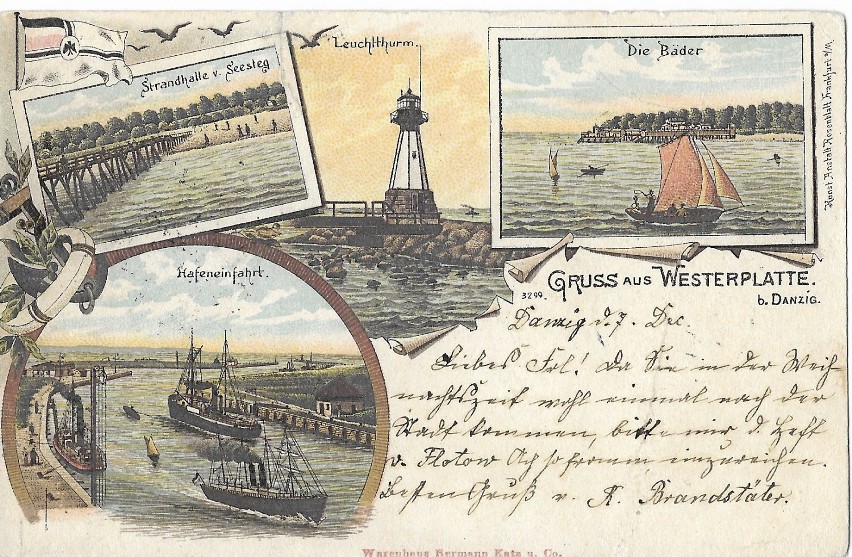 Strandhalle v. Seesteg
Leuchtthurm.
Die Bäder
Kunst Anstalt Rosenblatt, Frankfurt a/M.
Hafeneinfahrt.
GRUSS AUS WESTERPLATTE.
b. DANZIG.
3299.
Danzig d. 7. Dec.
Liebes Frl! Da Sie in der Weih-
nachtszeit wohl einmal nach der
Stadt kommen, bitte mir d. Heft
v. Flotow Ach so fromm einzureichen.
Besten Gruß v. K. Brandstäter.
Warenhaus Hermann Katz u. Co.